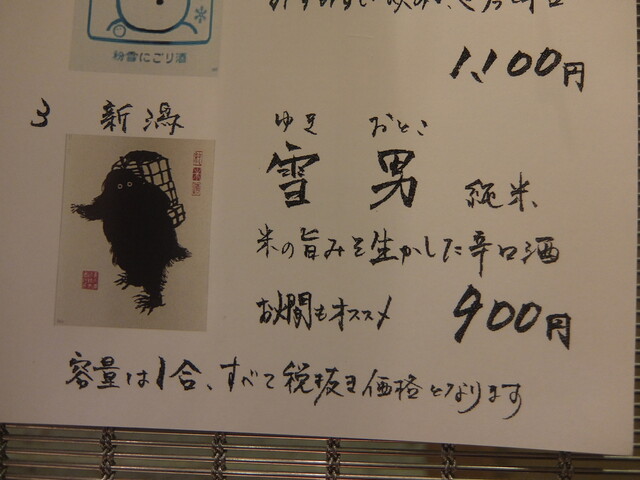 粉雪にごり酒
1,100円
3 新潟
ゆき おとこ
雪 男 純米
米の旨みを生かした辛口酒
お燗もオススメ 900円
容量は1合、すべて税抜き価格となります